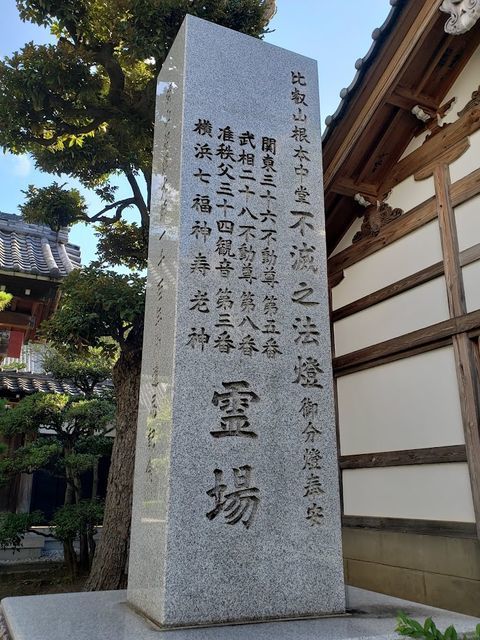 比叡山根本中堂不滅之法燈御分燈奉安
関東三十六不動尊第五番
武相二十八不動尊第八番
准秩父三十四観音第三番
横浜七福神寿老神
霊場